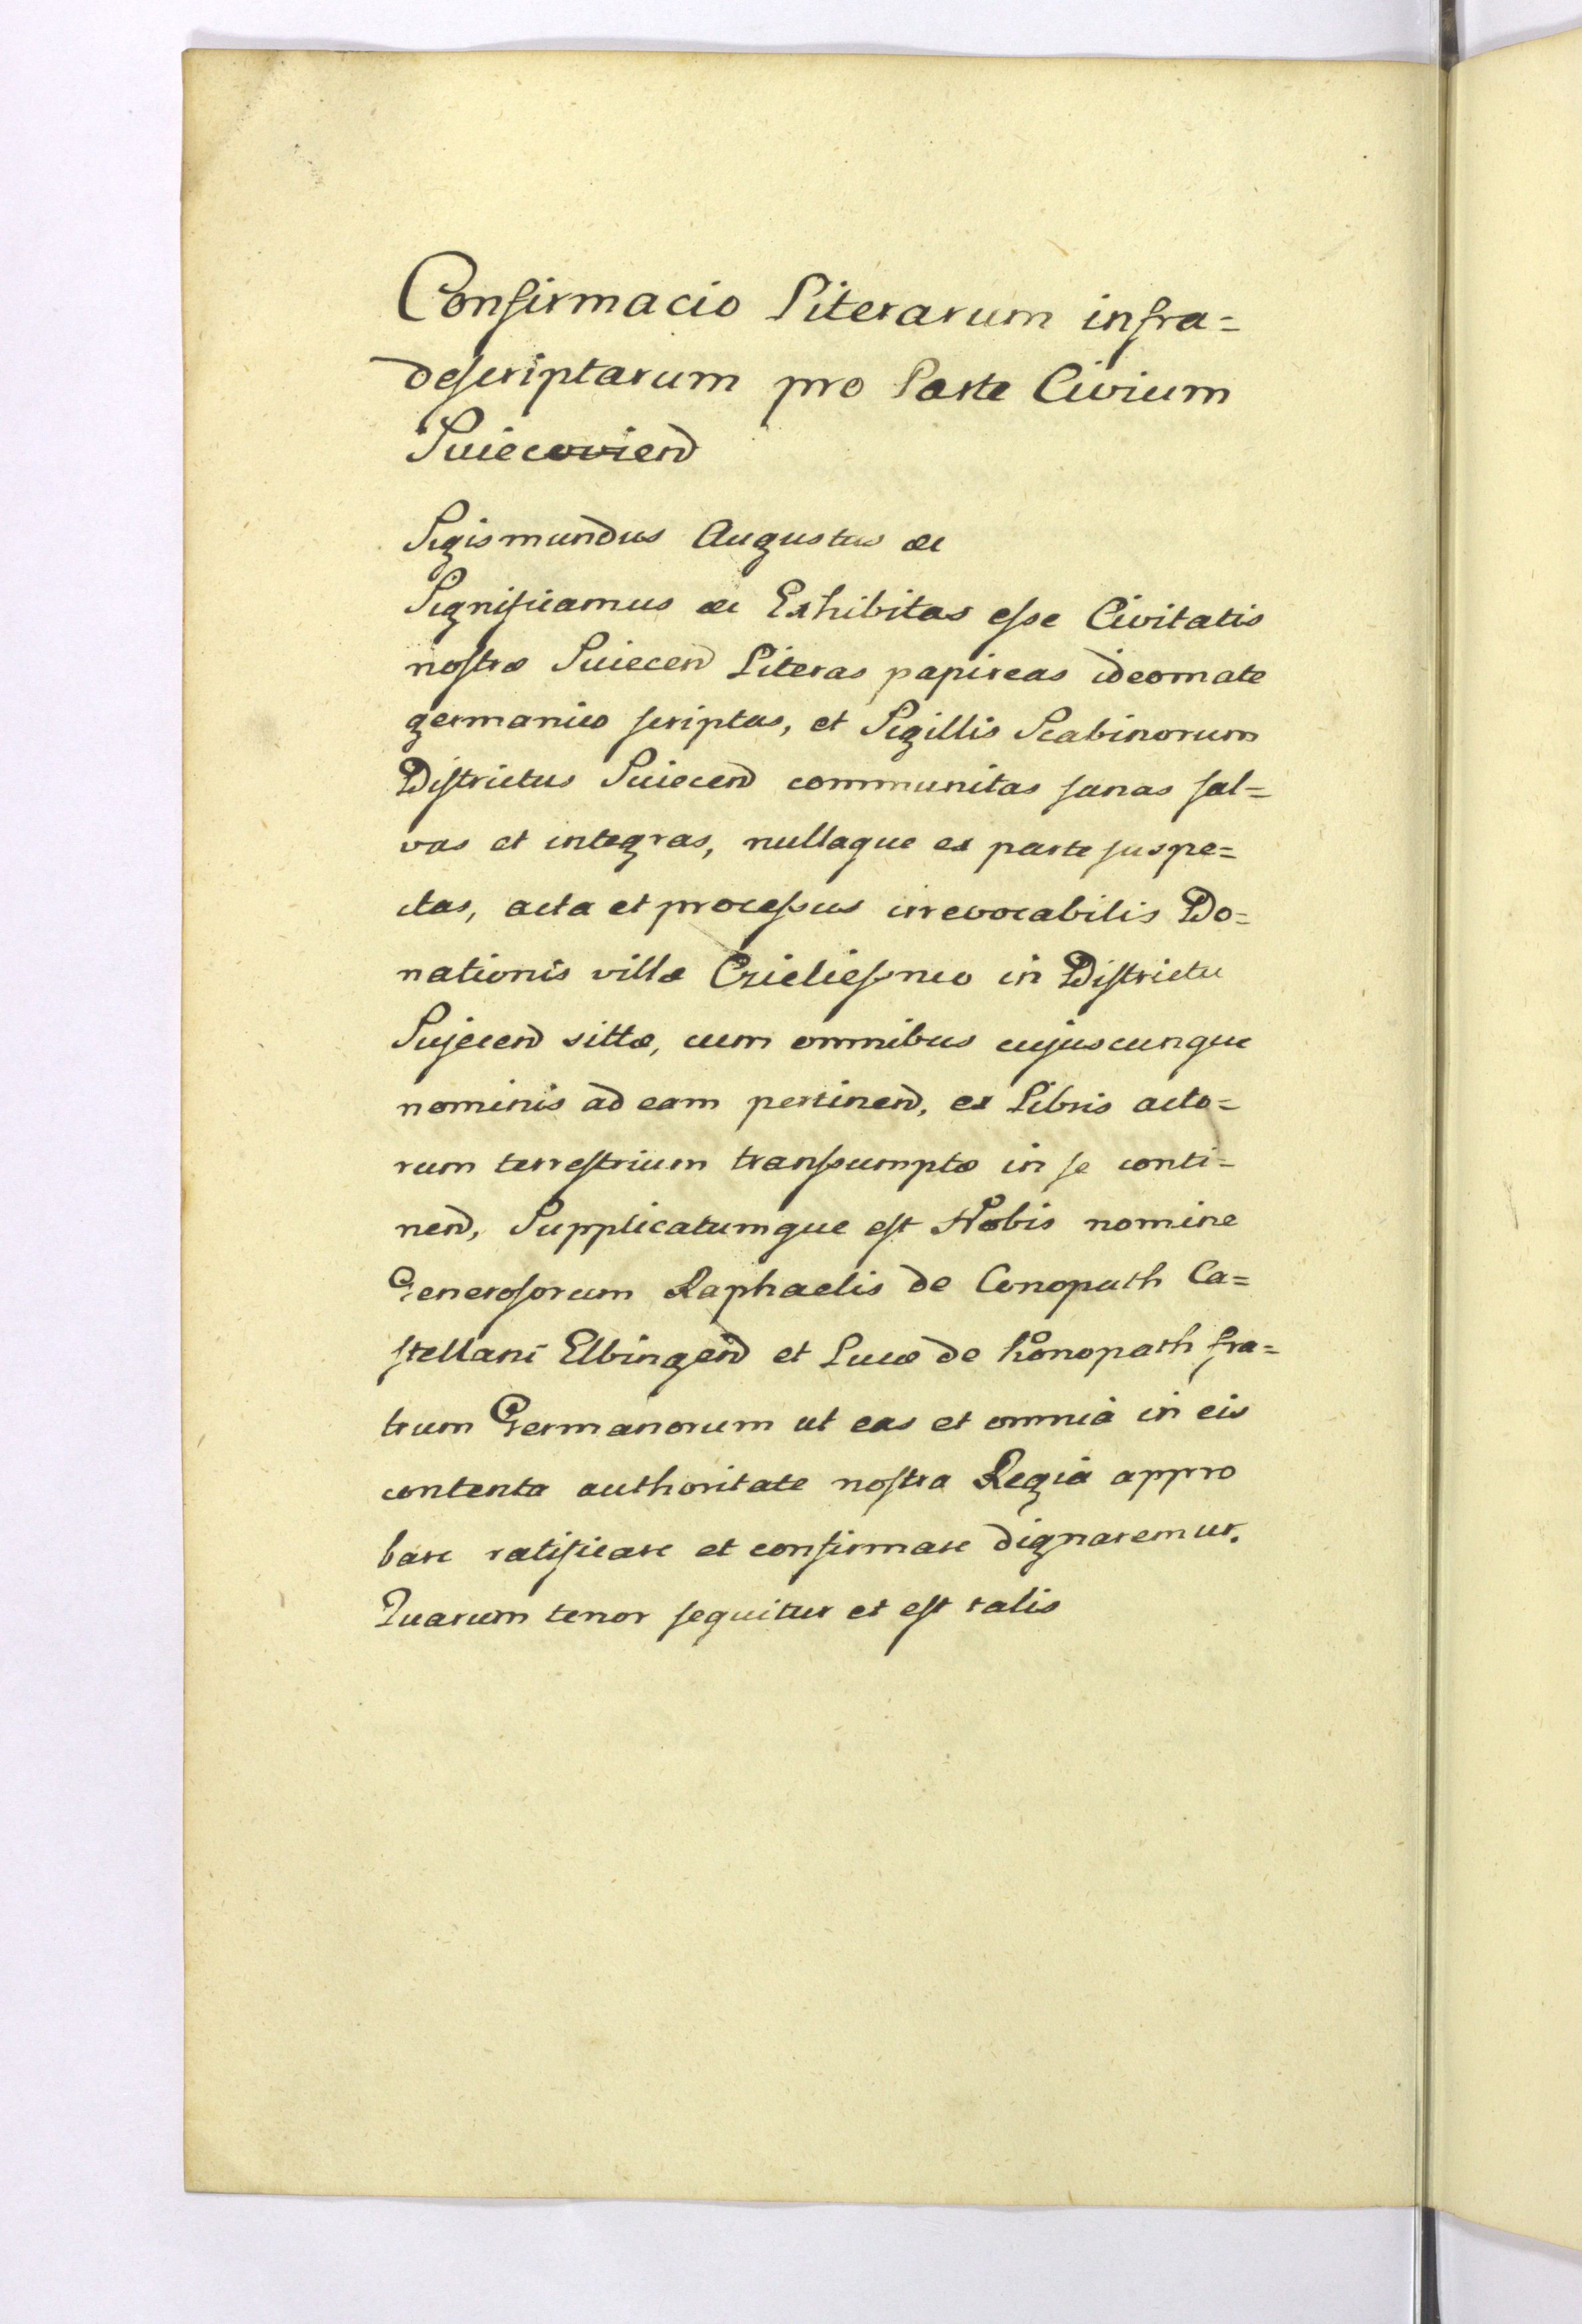 Confirmacio Literarum infra=
descriptarum pro Parte Civium
Suiecovien
Sigismundus Augustus &c
Significamus &c Exhibitas esse Civitatis
nostræ Suiecen Literas papireas ideomate
germanico scriptas, et Sigillis Scabinorum
Districtus Suiecen communitas sanas sal=
vas et integras, nullaque ex parte suspe=
ctas, acta et processus irrevocabilis Do=
nationis villæ Czieliessnco in Districtu
Sujecen sittæ, cum omnibus cujuscunque
nominis ad eam pertinen, ex Libris acto=
rum terrestrium transsumptæ in se conti=
nen, Supplicatumque est Nobis nomine
Generosorum Raphaelis de Conopath Ca=
stellani Elbingen et Lucæ de Konopath fra=
trum Germanorum ut eas et omnia in eis
contenta authoritate nostra Regia appro
bare ratificare et confirmare dignaremur.
Quarum tenor sequitur et est talis